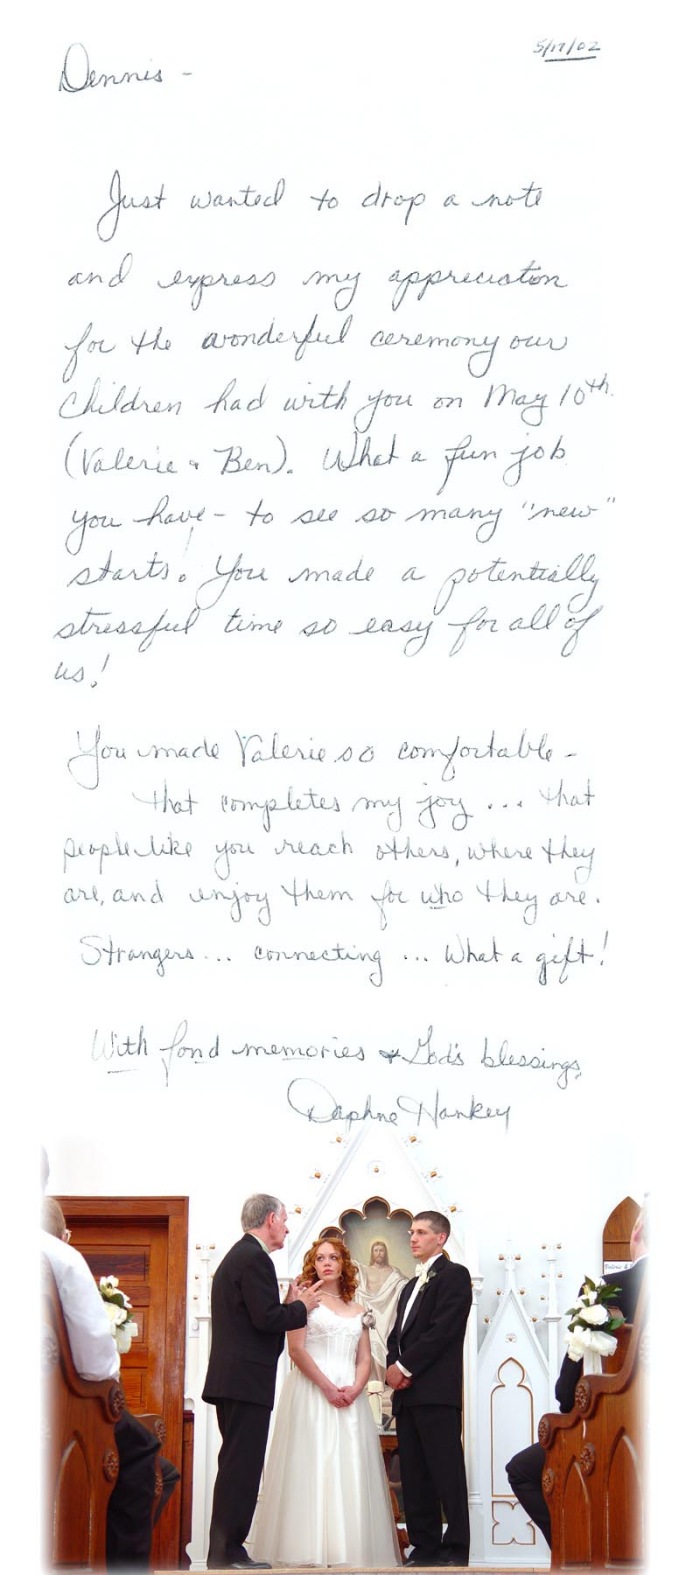 5/17/02
Dennis -
Just wanted to drop a note
and express my appreciation
for the wonderful ceremony our
children had with you on May 10th.
(Valerie & Ben). What a fun job
you have - to see so many "new"
starts! You made a potentially
stressful time so easy for all of
us!
You made Valerie so comfortable -
that completes my joy ... that
people like you reach others, where they
are, and enjoy them for who they are.
Strangers ... connecting ... What a gift!
With fond memories & God's blessings,
Daphne Hankey